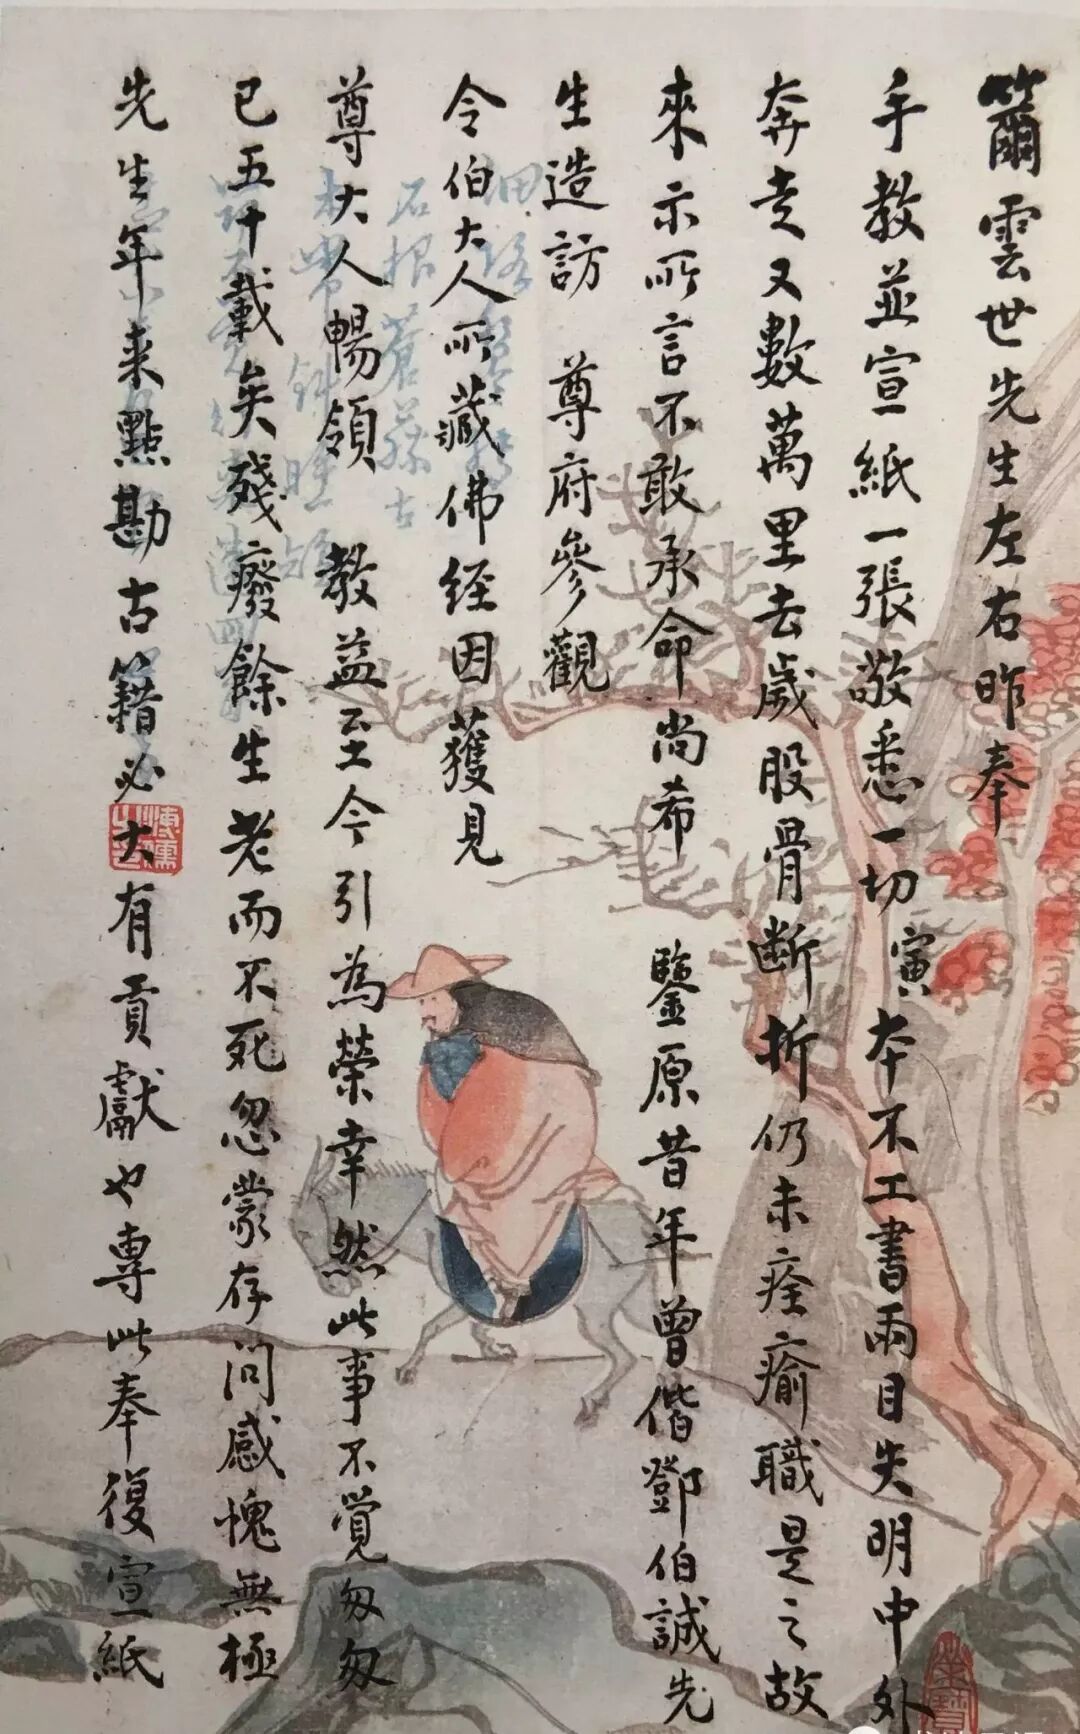 籋雲世先生左右昨奉
手教並宣紙一張敬悉一切寅本不工書兩目失明中外
奔走又數萬里去歲股骨斷折仍未痊瘉職是之故
來示所言不敢承命尚希 鑒原昔年曾偕鄧伯誠先
生造訪 尊府參觀
令伯大人所藏佛經因獲見
尊大人暢領 教益至今引為榮幸然此事不覺匆匆
已五十載矣殘癈餘生老而不死忽蒙存問感愧無極
先生年來點勘古籍必大有貢獻也專此奉復宣紙
石根蒼蘚古
溥儒